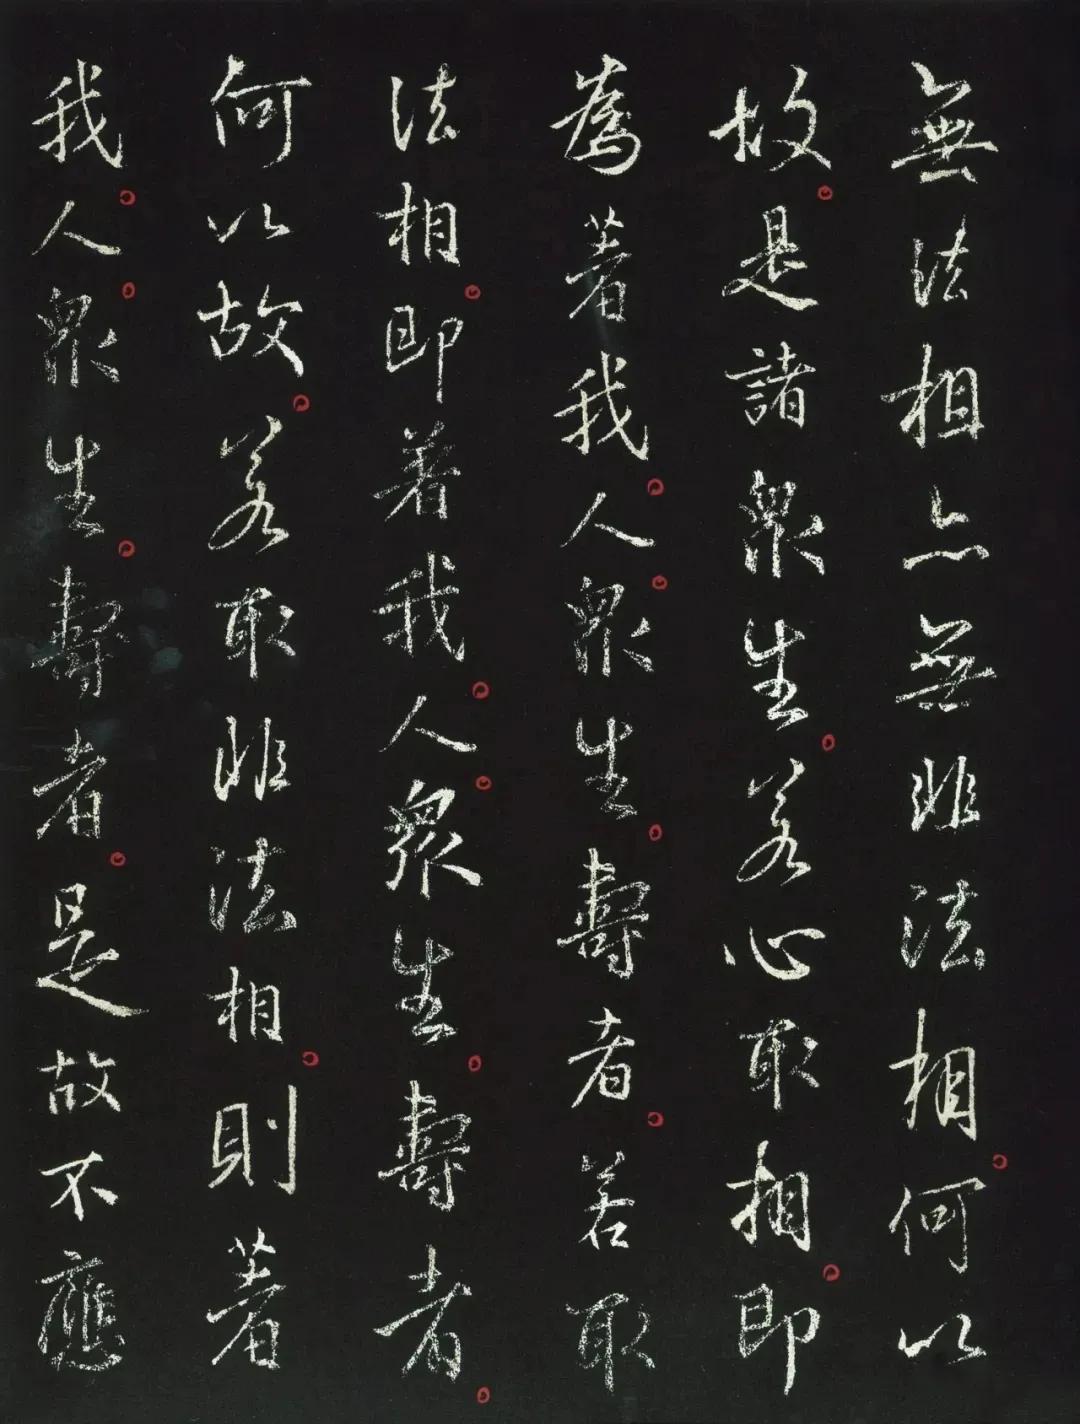 無法相亦無非法相。何以
故。是諸眾生。若心取相。即
為著我。人。眾生。壽者。若取
法相。即著我。人。眾生。壽者。
何以故。若取非法相。則著
我。人。眾生。壽者。是故不應